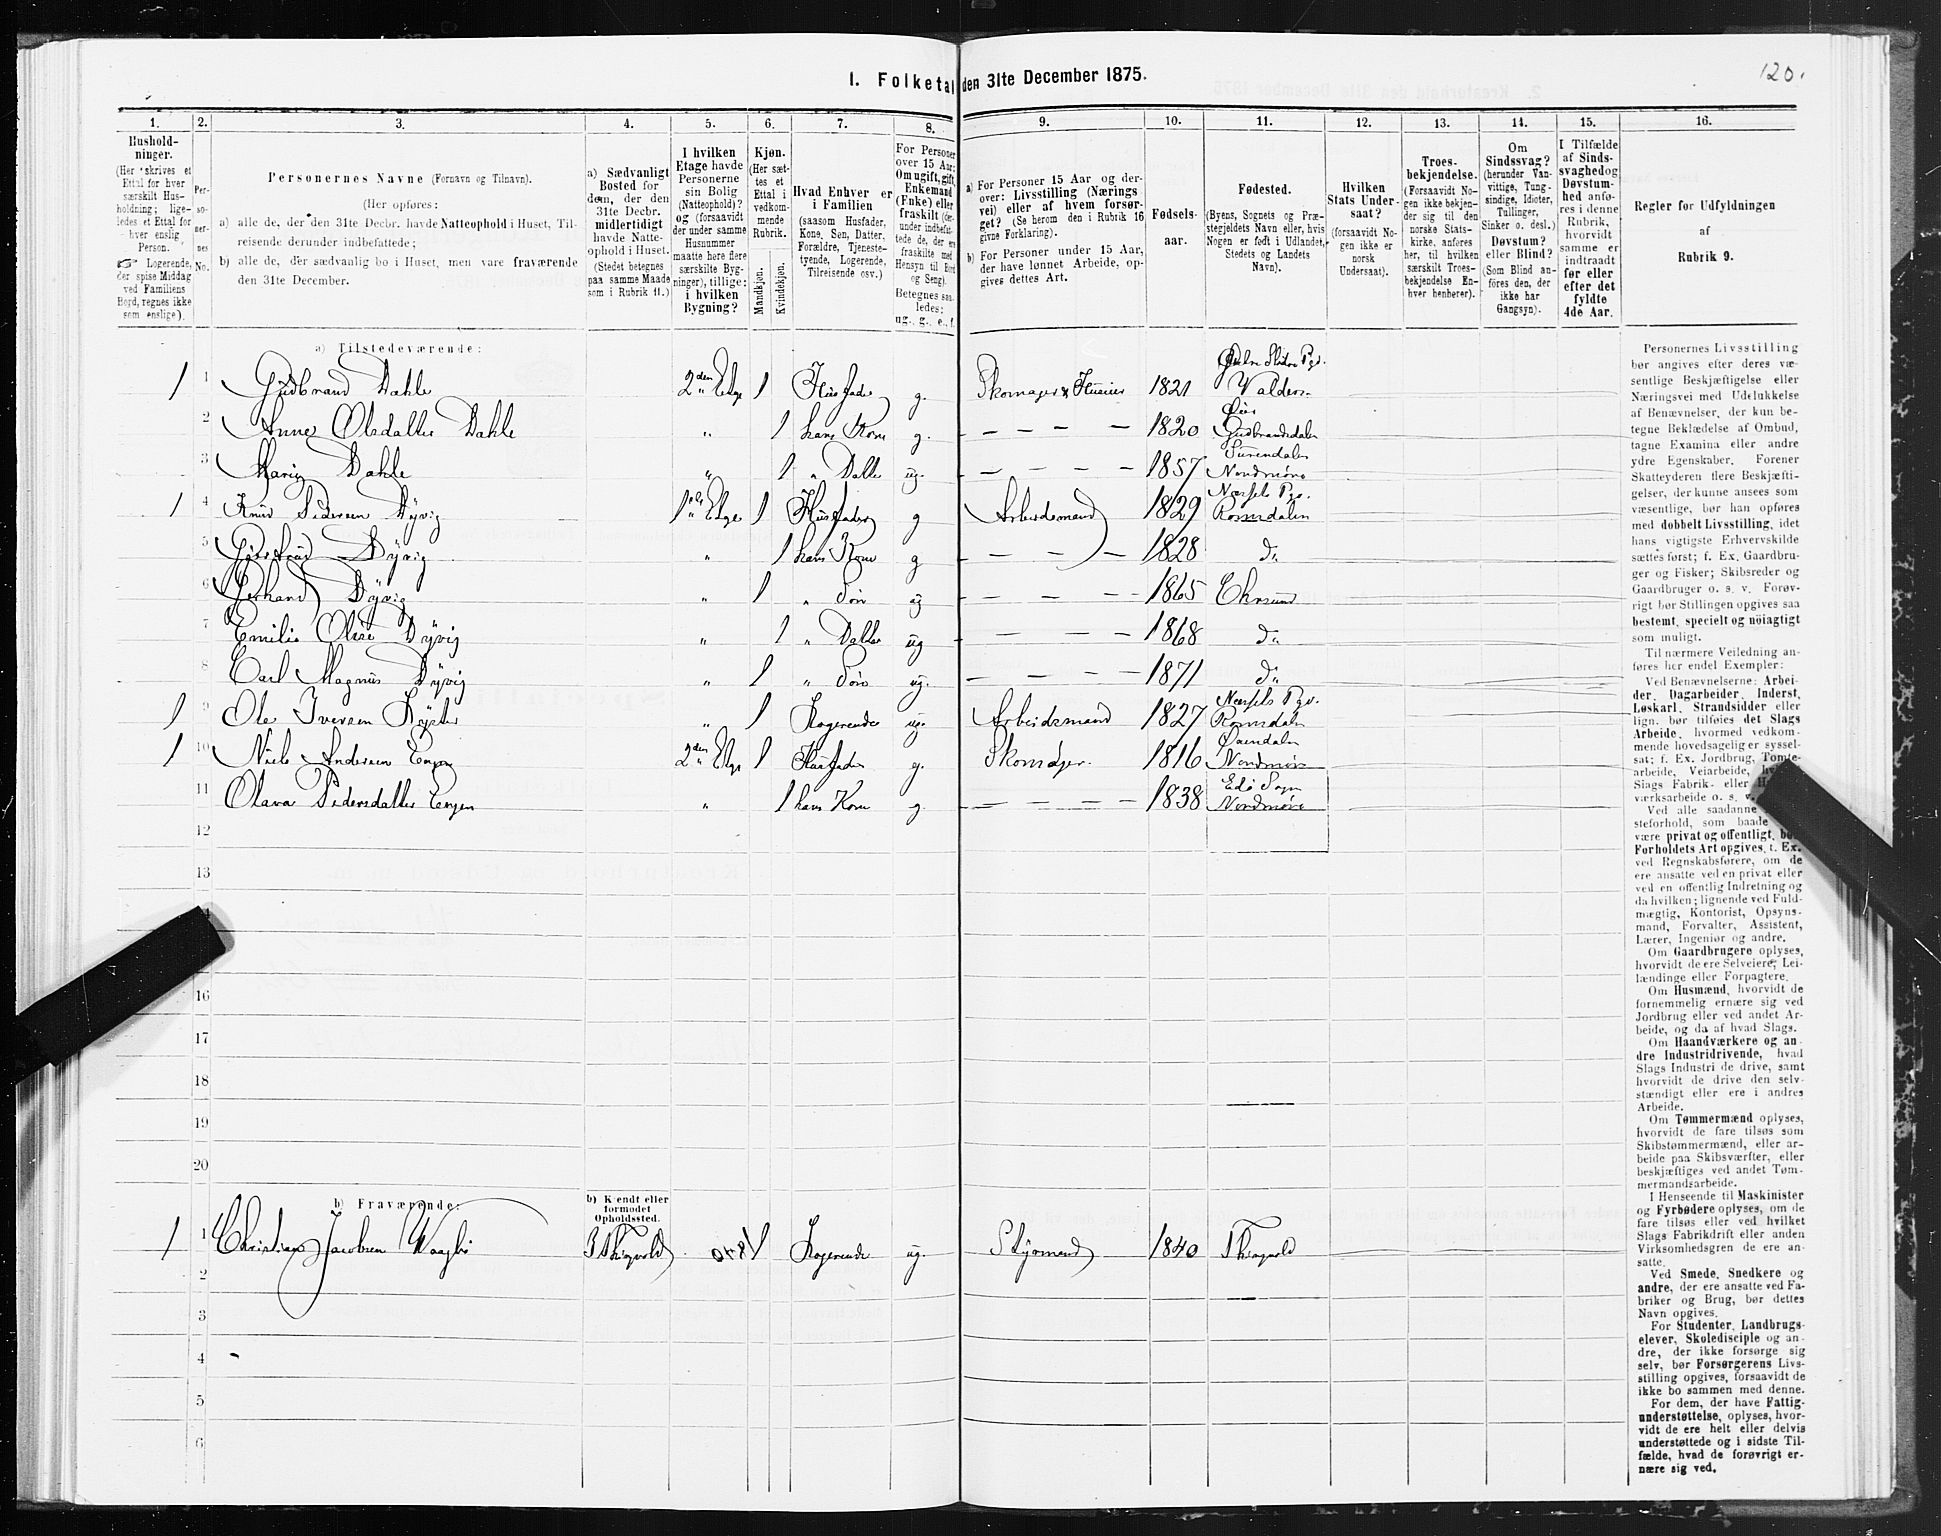 120.
I. Folketal den 31te December 1875.
1. 2. 3. 4. 5. 6. 7. 8. 9. 10. 11. 12. 13. 14. 15. 16.
Hushold-
ninger.
(Her skrives et
Ettal for hver
særskilt Hus-
holdning; lige-
ledes et Ettal for
hver enslig
Person.
☞ Logerende,
der spise Middag
ved Familiens
Bord, regnes ikke
som enslige).
Per-
so-
ner-
nes
No.
Personernes Navne (Fornavn og Tilnavn).
(Her opføres:
a) alle de, der den 31te Decbr. havde Natteophold i Huset, Til-
reisende derunder indbefattede;
b) alle de, der sædvanlig bo i Huset, men vare fraværende
den 31te December.
a) Sædvanligt
Bosted for
dem, der den
31te Decbr.
midlertidigt
havde Natte-
ophold i Huset.
(Stedet betegnes
paa samme Maade
som i Rubrik 11.)
I hvilken
Etage havde
Personerne
sin Bolig
(Natteophold)?
og (forsaavidt
der under samme
Husnummer
maatte høre flere
særskilte Byg-
ninger), tillige:
i hvilken
Bygning?
Kjøn.
(Her sæt-
tes et
Ettal i
vedkom-
mende
Rubrik.
Mandkjøn.
Kvindekjøn.
Hvad Enhver er
i Familien
(saasom Husfader,
Kone, Søn, Datter,
Forældre, Tjeneste-
tyende, Logerende,
Tilreisende osv.)
For Personer
over 15 Aar:
Om ugift, gift,
Enkemand
(Enke) eller
fraskilt (der-
under indbefat-
tede de, der ere
fraskilte med
Hensyn til Bord
og Seng).
Betegnes saa-
ledes:
ug., g., e., f.
a) For Personer 15 Aar og der-
over: Livsstilling (Nærings-
vei) eller af hvem forsør-
get? (Se herom den i Rubrik 16
givne Forklaring).
b) For Personer under 15 Aar,
der have lønnet Arbeide, op-
gives dettes Art.
Fødsels-
aar.
Fødested.
(Byens, Sognets og Præ-
stegjeldets Navn eller, hvis
Nogen er født i Udlandet,
Stedets og Landets
Navn).
Hvilken
Stats Under-
saat?
(forsaavidt No-
gen ikke er
norsk
Undersaat).
Troes-
bekjendelse.
(Forsaavidt No-
gen ikke bekjen-
der sig til den
norske Stats-
kirke, anføres
her, til hvilken
særskilt Troes-
bekjendelse En-
hver henhører).
Om
Sindssvag?
(herunder Van-
vittige, Tung-
sindige, Idioter,
Tullinger,
Sinker o. desl.)
Døvstum?
eller Blind?
(Som Blind an-
føres den, der
ikke har
Gangsyn).
I Tilfælde
af Sinds-
svaghed og
Døvstum-
hed anfø-
res i denne
Rubrik,
hvorvidt
samme er
indtraadt
før eller
efter det
fyldte
4de Aar.
Regler for Udfyldningen
af
Rubrik 9.
a) Tilstedeværende:
1 1 Gudbrand Dahle 2den Etge 1 Husfader g. Skomager & Huseier 1821 Slidre Pgd. Valders.
2 Anne Olsdatter Dahle " 1 hans Kone g. 1820 Gudbrandsdalen
3 Marie Dahle " 1 " Datter ug. 1857 Surendalen Nordmøre
1 4 Knud Pedersen Dyvig 1ste Etge 1 Husfader g Arbeidsmand 1829 Næssets Pgd. Romsdalen
5 Gjertrud Dyvig " 1 hans Kone g 1828 do
6 Gerhard Dyvig " 1 " Søn ug 1865 Chrsund
7 Emilie Oline Dyvig " 1 " Datter ug 1868 do
8 Carl Magnus Dyvig " 1 " Søn ug. 1871 do
1 9 Ole Iversen " 1 Logerende ug. Arbeidsmand 1827 Næssets Pgd. Romsdalen
1 10 Niels Andersen Engen 2den Etge 1 Husfader g. Skomager. 1816 Nordmøre
11 Olava Pedersdatter Engen " 1 hans Kone g. 1838 Edø Sogn Nordmøre
12
13
16
17
18
19
20
b) Fraværende:
b) Kjendt eller
formodet
Opholdssted.
1 1 Christian Jacobsen Waagbø 1 Logerende ug. 1840
2
3
4
5
6
Personernes Livsstilling
bør angives efter deres væ-
sentlige Beskjæftigelse eller
Næringsvei med Udelukkelse
af Benævnelser, der kun be-
tegne Beklædelse af Ombud,
tagne Examina eller andre
ydre Egenskaber. Forener
Skatteyderen flere Beskjæfti-
gelser, der kunne ansees som
væsentlige, bør han opføres
med dobbelt Livsstilling, idet
hans vigtigste Erhvervskilde
sættes først; f. Ex. Gaardbru-
ger og Fisker; Skibsreder og
Gaardbruger o. s. v. Forøv-
rigt bør Stillingen opgives saa
bestemt, specielt og nöiagtigt
som muligt.
Til nærmere Veiledning an-
føres her endel Exempler:
Ved Benævnelserne: Arbei-
der, Dagarbeider, Inderst,
Løskarl, Strandsidder eller
lign. bør tilføies det Slags
Arbeide, hvormed vedkom-
mende hovedsagelig er syssel-
sat; f. Ex. Jordbrug, Tomte-
arbeide, Veiarbeide,
Slags Fabrik- eller
værksarbeide o. s. v.
Ved alle saadanne
steforhold, som baade
være privat og offentligt, bør
Forholdets Art opgives, t. Ex.
ved Regnskabsførere, om de
ere ansatte ved en privat eller
ved en offentlig Indretning og
da hvilken; lignende ved Fuld-
mægtig, Kontorist, Opsyns-
mand, Forvalter, Assistent,
Lærer, Ingeniør og andre.
Om Gaardbrugere oplyses,
hvorvidt de ere Selveiere, Lei-
lændinge eller Forpagtere.
Om Husmænd, hvorvidt de
fornemmelig ernære sig ved
Jordbrug eller ved andet Ar-
beide, og da af hvad Slags.
Om Haandværkere og an-
dre Industridrivende, hvad
Slags Industri de drive, samt
hvorvidt de drive den selv-
stændigt eller ere i andres
Arbeide.
Om Tømmermænd oplyses,
hvorvidt de fare tilsøs som
Skibstømmermænd, eller ar-
beide paa Skibsværfter, eller
beskjæftiges ved andet Tøm-
mermandsarbeide.
I Henseende til Maskinister
og Fyrbødere oplyses, om de
fare tilsøs eller ved hvilket
Slags Fabrikdrift eller anden
Virksomhedsgren de ere an-
satte.
Ved Smede, Snedkere og
andre, der ere ansatte ved Fa-
briker og Brug, bør dettes
Navn opgives.
For Studenter, Landbrugs-
elever, Skoledisciple og an-
dre, der ikke forsørge sig
selv, bør Forsørgerens Livs-
stilling opgives, forsaavidt de
ikke bo sammen med denne.
For dem, der have Fattig-
understøttelse, oplyses, hvor-
vidt de ere helt eller delvis
understøttede og i sidste Til-
fælde, hvad de forøvrigt er-
nære sig ved.